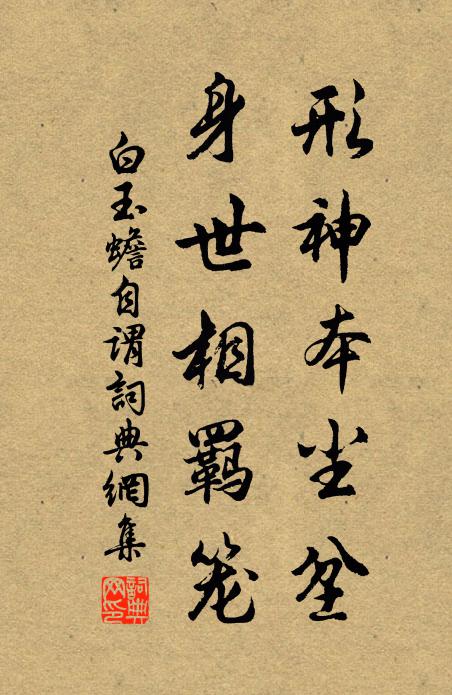 形神本尘坌
身世相羈笼
白玉蟾自謂詞典網集
詞典网印